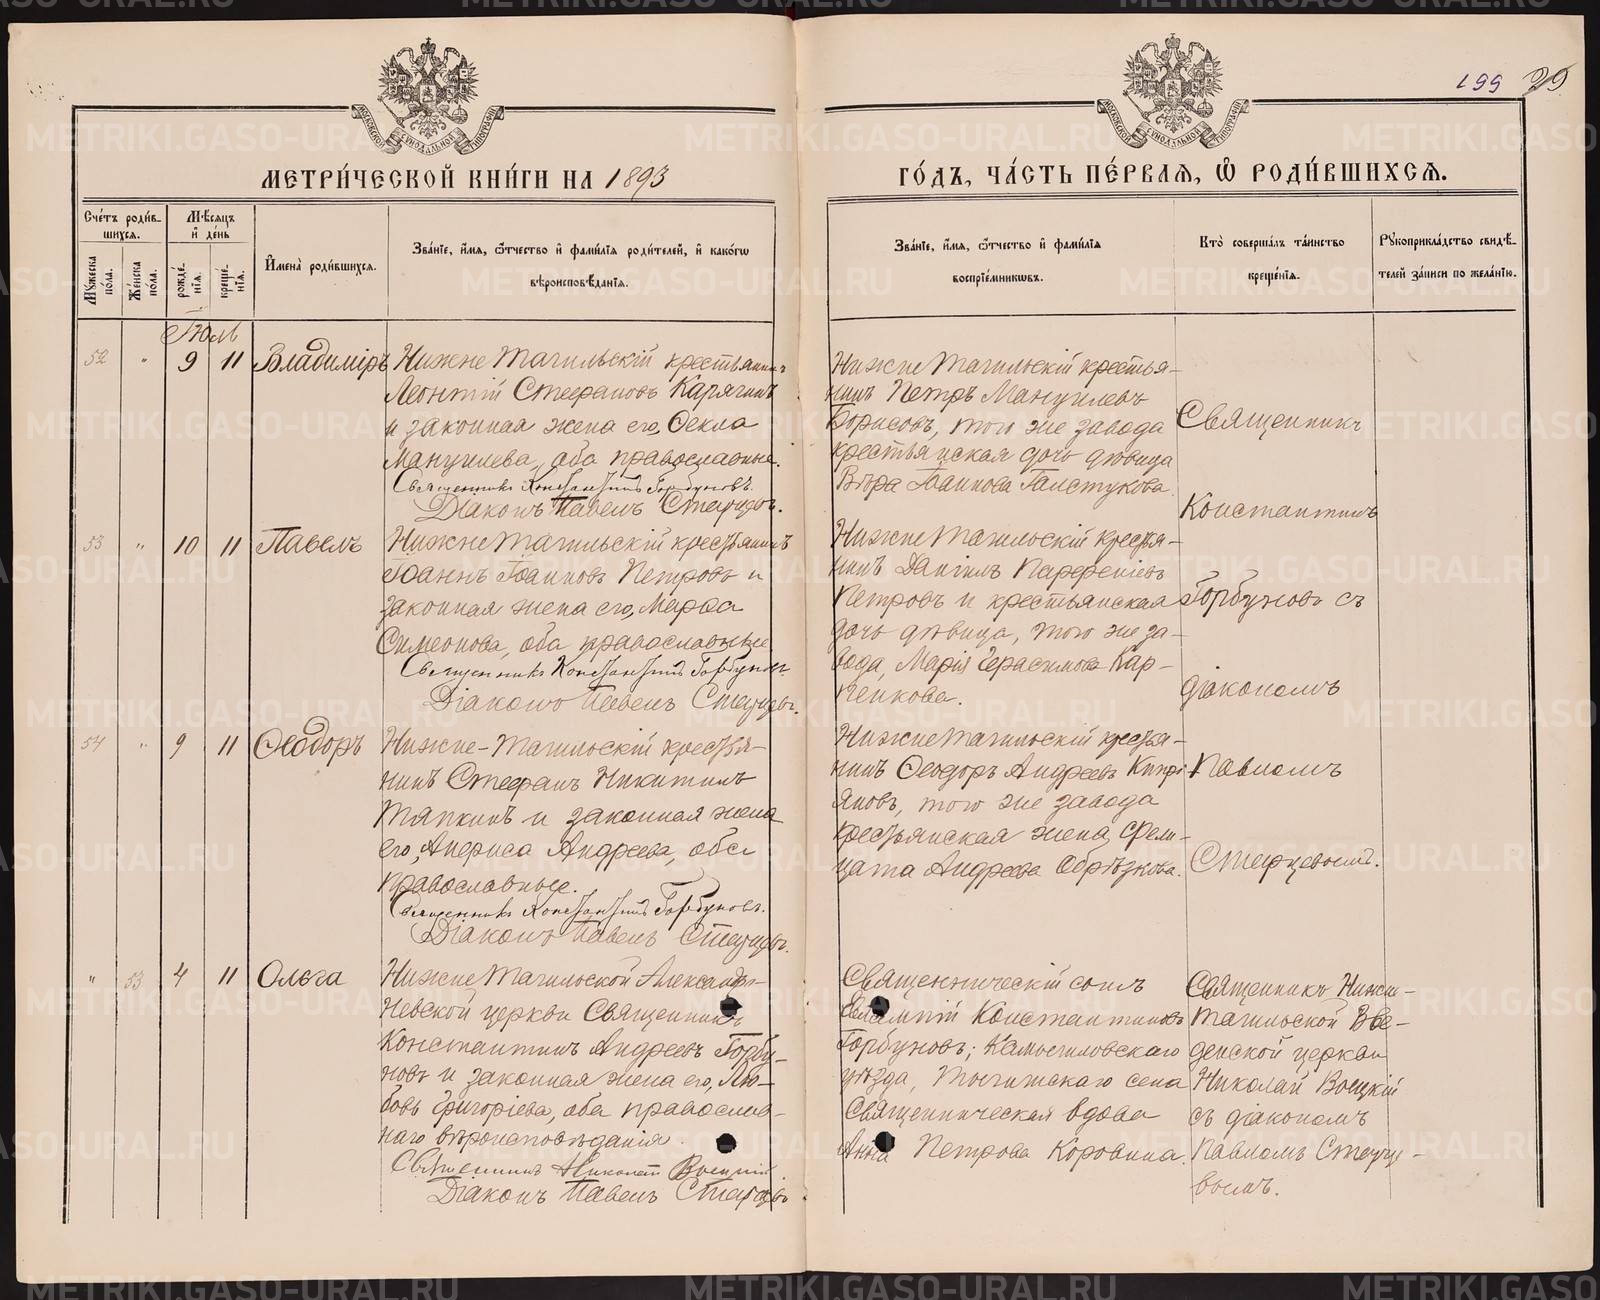 199 29
МЕТРИ́ЧЕСКОЙ КНИ́ГИ НА 1893
ГО́ДЪ, ЧА́СТЬ ПЕ́РВАЯ, Ѡ РОДИ́ВШИХСЯ.
Счетъ родившихся.
Мужеска пола.
Женска пола.
Мѣсяцъ и день
рожденія.
крещенія.
Имена родившихся.
Званіе, имя, отчество и фамилія родителей, и какого вѣроисповѣданія.
Званіе, имя, отчество и фамилія воспріемниковъ.
Кто совершалъ таинство крещенія.
Рукоприкладство свидѣтелей записи по желанію.
Іюль
52 " 9 11 Владиміръ
Нижне Тагильскій крестьянинъ
Леонтій Стефановъ Карягинъ
и законная жена его, Ѳекла
Мануилева, оба православные.
Священникъ Константинъ Горбуновъ.
Діаконъ Павелъ Старцовъ.
Нижне Тагильскій крестья-
нинъ Петръ Мануилевъ
Борисовъ, того же завода
крестьянская дочь дѣвица
Вѣра Іоаннова Галстукова
53 " 10 11 Павелъ
Нижне Тагильскій крестьянинъ
Іоаннъ Іоанновъ Петровъ и
законная жена его, Марѳа
Симеонова, оба православные
Священникъ Константинъ Горбуновъ
Діаконъ Павелъ Старцовъ.
Нижне Тагильскій крестья-
нинъ Даніилъ Парѳеніевъ
Петровъ и крестьянская
дочь дѣвица, того же за-
вода, Марія Герасимова Кар-
пенкова.
54 " 9 11 Ѳеодоръ
Нижне-Тагильскій крестья-
нинъ Стефанъ Никитинъ
Тяпкинъ и законная жена
его, Анфиса Андреева, оба
православные.
Священникъ Константинъ Горбуновъ.
Діаконъ Павелъ Старцовъ.
Нижне Тагильскій крестья-
нинъ Ѳеодоръ Андреевъ Кипрі
яновъ, того же завода
крестьянская жена
Андреева Обрѣзкова.
Священникъ
Константинъ
Горбуновъ съ
діакономъ
Павломъ
Старцевымъ.
" 53 4 11 Ольга
Нижне Тагильской Александро-
Невской церкви Священникъ
Константинъ Андреевъ Горбу-
новъ и законная жена его, Лю-
бовь Григоріева, оба православ-
наго вѣроисповѣданія.
Священникъ Николай
Діаконъ Павелъ Старцовъ
Священническій сынъ
Евлампій Константиновъ
Горбуновъ; Камышловскаго
уѣзда, села
Священническая вдова
Анна Петрова Коровина.
Священникъ Нижне-
Тагильской Вве-
денской церкви
Николай
съ діакономъ
Павломъ Старце-
вымъ.
METRIKI.GASO-URAL.RU